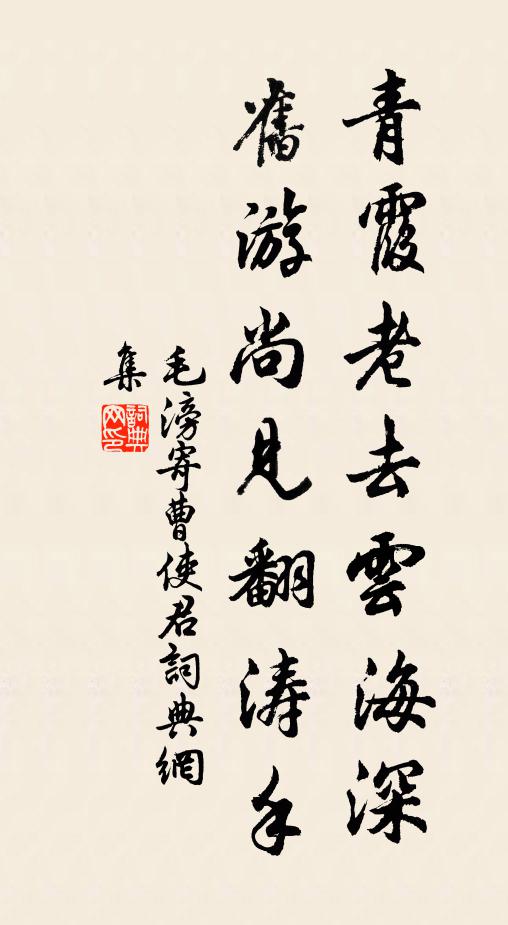 青霞老去雲海深
舊游尚見翻涛手
毛滂寄曹使君詞典網
集
詞典网印